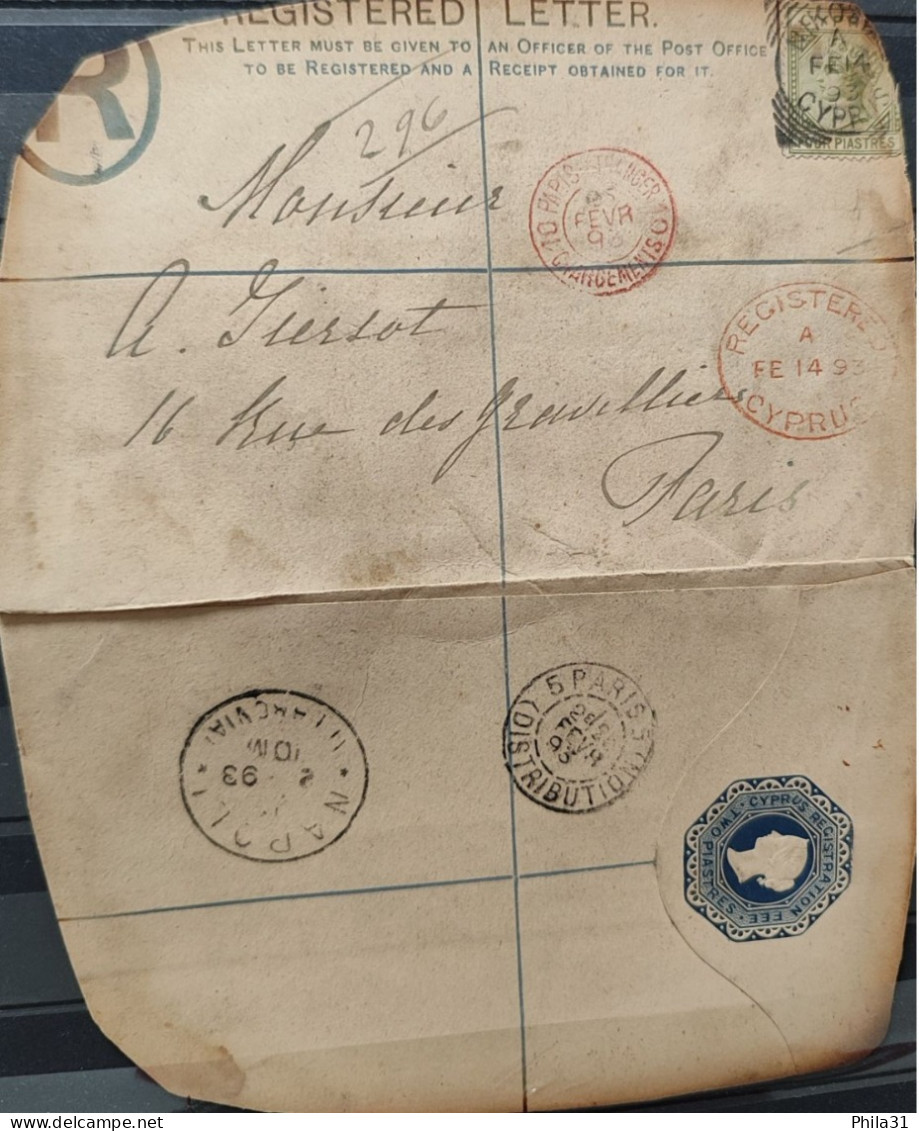 REGISTERED LETTER.
THIS LETTER MUST BE GIVEN TO AN OFFICER OF THE POST OFFICE
TO BE REGISTERED AND A RECEIPT OBTAINED FOR IT.
R
A
FE 14
93
CYPR
FOUR PIASTRES
296
Monsieur
PARIS ETRANGER
FEVR
93
10 CHARGEMENTS 10
A. Tiersot
REGISTERED
A
FE 14 93
CYPRUS
16 Rue des Gravilliers
Paris
NAPOLI
10 M
93
5 PARIS 5
(DISTRIBUTION)
FEVR
93
CYPRUS REGISTRATION FEE
TWO PIASTRES
Phila31